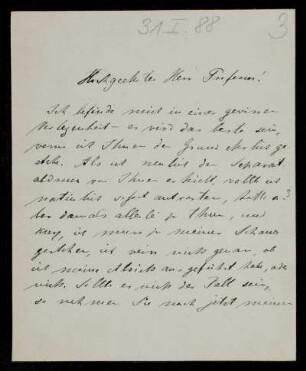 31 I. 88
3
Hochgeehrter Herr Professor!
Ich befinde mich in einer gewissen
Verlegenheit – es wird das beste sein,
wenn ich Ihnen den Grund ehrlich ge-
stehe. Als ich neulich den Separat
abdruck von Ihnen erhielt, wollte ich
natürlich sofort antworten, hatte a-
ber damals allerlei zu thun, und
kurz, ich muss zu meiner Schande
gestehen, ich weiss nicht genau, ob
ich meine Absicht ausgeführt habe, oder
nicht. Sollte es nicht der Fall sein,
so nehmen Sie noch jetzt meinen